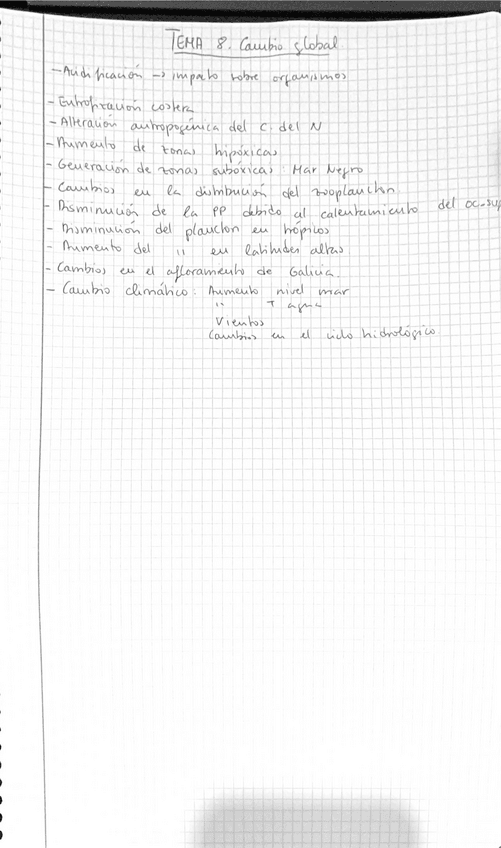 TEMA 8. Cambio global
- Acidificación → impacto sobre organismos
- Eutrofización costera
- Alteración antropogénica del C. del N
- Aumento de zonas hipóxicas
- Generación de zonas subóxicas: Mar Negro
- Cambios en la distribución del zooplancton.
- Disminución de la PP debido al calentamiento del oc. sup
- Disminución del plancton en trópicos
- Aumento del " en latitudes altas
- Cambios en el afloramiento de Galicia.
- Cambio climático: Aumento nivel mar
" T agua
Vientos
Cambios en el ciclo hidrológico